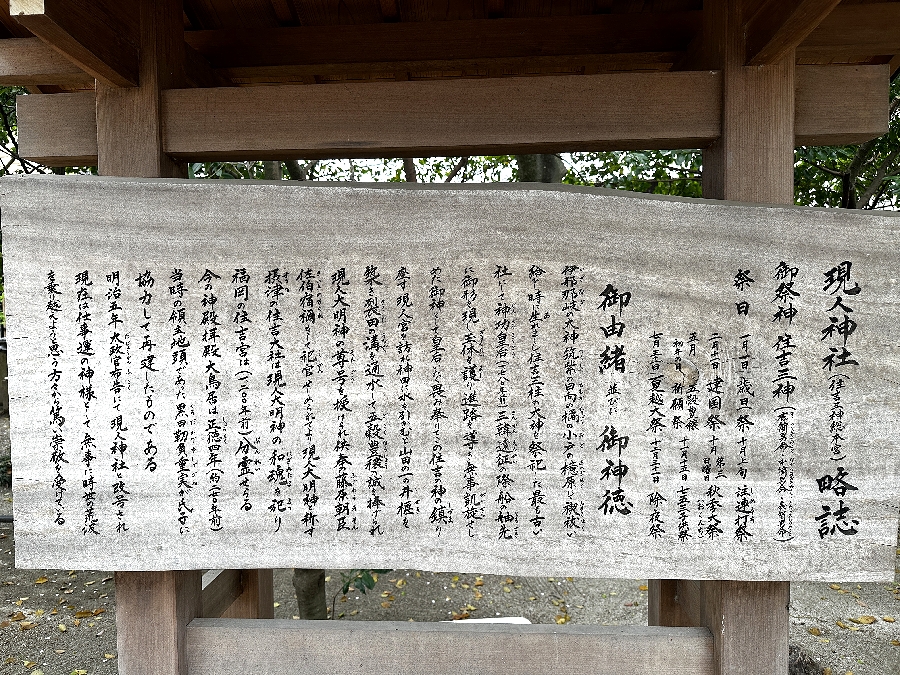 現人神社(住吉三神総本宮)略誌
御祭神 住吉三神(底筒男命・中筒男命・表筒男命)
祭日 一月一日 歳旦祭 十月上旬 注連打祭
二月十一日 建国祭 十月 第三 秋季大祭
五月 初午の日 五穀豊穣 祈願祭 十一月十五日 七五三祭
七月三十一日 夏越大祭 十二月三十一日 除夜祭
御由緒 並びに 御神徳
伊邪那岐の大神筑紫の日向の橘の小戸の檍原にて禊祓い
給いし時に生れましし住吉三柱の大神を祭祀した最も古い
社にして神功皇后三韓遠征の際船の舳先
に御形を現し玉体を護り進路を導き無事凱旋せし
めた御神として皇后いたく畏み奉りてこの住吉の神の鎮り
座す現人宮を訪れ神田に水を引かむと山田の一の井堰を
築き裂田の溝を通水して五穀豊穣の誠を捧げられ
現人大明神の尊号を授けられ供奉の藤原朝臣
佐伯宿禰をして祀官せしめられてより現人大明神と称す
摂津の住吉大社は現人大明神の和魂を祀り
福岡の住吉宮は(一二〇〇年前)分霊せらる
今の神殿拝殿大鳥居は正徳四年(約二八〇年前)
当時の領主地頭であった黒田勘負重実が氏子に
協力して再建したものである
明治五年太政官布告にて現人神社と改号され
現在は仕事運の神様として無事に時世の荒波
を乗り越えようと思う方々から篤い崇敬を受けている